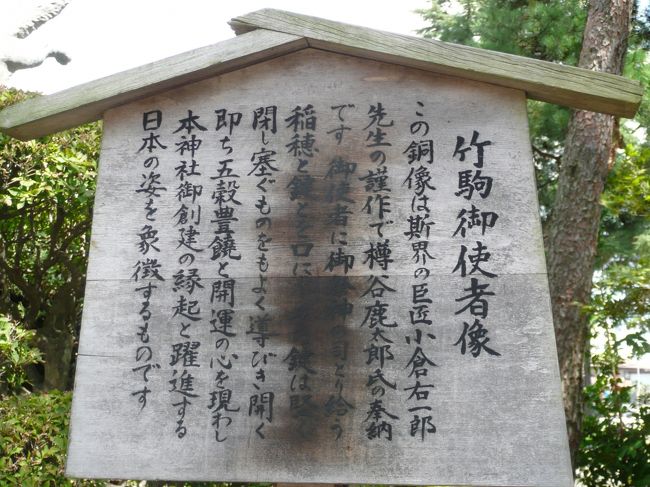 竹駒御使者像
この銅像は斯界の巨匠小倉右一郎
先生の謹作で樽谷鹿太郎氏の奉納
です 御使者に御 神の司とり給う
稲穂と鍵とを口に 鍵は堅く
閉し塞ぐものをもよく導びき開く
即ち五穀豊饒と開運の心を現わし
本神社御創建の縁起と躍進する
日本の姿を象徴するものです